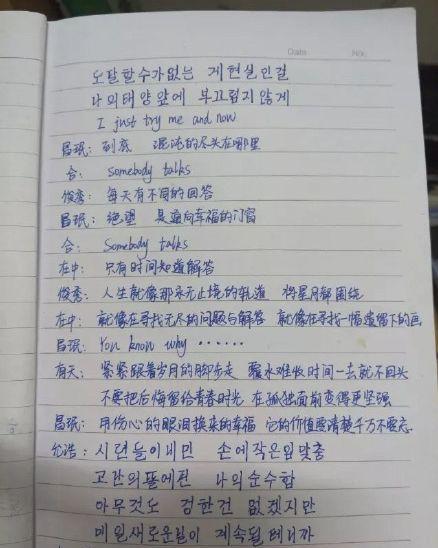 Date    No.
도달할수가없는 게현실인걸
나의태양앞에 부끄럽지않게
I just try me and now
昌珉: 到底 混沌的尽头在哪里
合: Somebody talks
俊秀: 每天有不同的回答
昌珉: 绝望 是通向幸福的门窗
合: Somebody talks
在中: 只有时间知道解答
俊秀: 人生就像那永无止境的轨道 将星月都围绕
在中: 就像在寻找无尽的问题与解答 就像在寻找一幅遗留下的画
昌珉: You know why ······
有天: 紧紧跟着岁月的脚步走 覆水难收时间一去就不回头
不要把后悔留给青春时光 在孤独面前变得更坚强
昌珉: 用伤心的眼泪换来的幸福 它的价值要清楚千万不要忘
允浩: 시련들이내민 손에작은입맞춤
고난의품에전 나의순수함
아무것도 정한건 없겠지만
매일새로운일이 계속될테니까